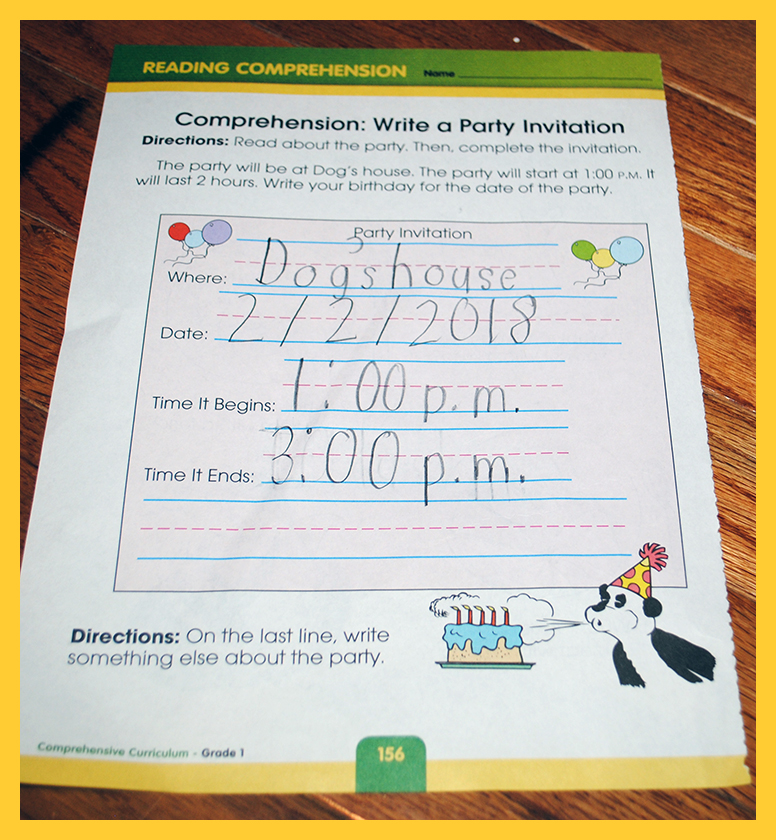 READING COMPREHENSION Name
Comprehension: Write a Party Invitation
Directions: Read about the party. Then, complete the invitation.
The party will be at Dog's house. The party will start at 1:00 P.M. It
will last 2 hours. Write your birthday for the date of the party.
Party Invitation
Where: Dog's house
Date: 2/2/2018
Time It Begins: 1:00 p.m.
Time It Ends: 3:00 p.m.
Directions: On the last line, write
something else about the party.
Comprehensive Curriculum - Grade 1
156